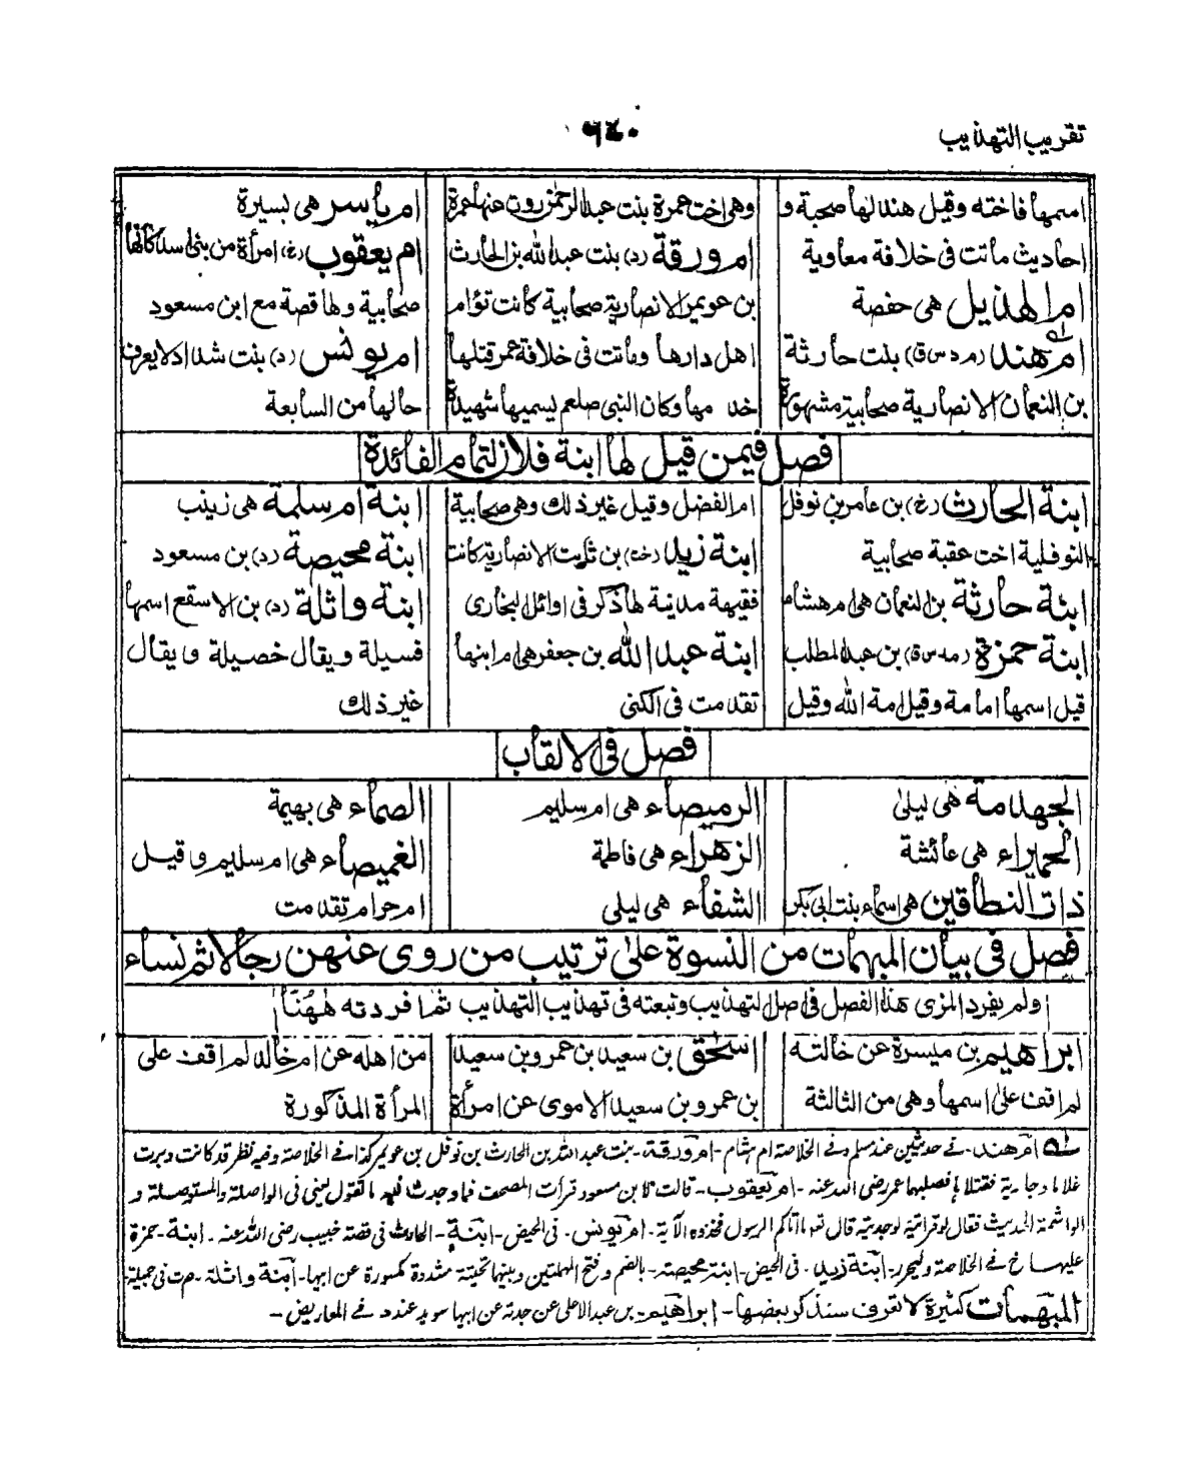 تقريب التهذيب
٦٤٠
اسمها فاخته وقيل هند لها صحبة و
احاديث ماتت فى خلافة معاوية
ام الهذيل هى حفصة
ام هند (م د س ق) بنت حارثة
بن النعمان الانصارية صحابية مشهورة
وهى اخت عمرة بنت عبد الرحمٰن روت عنها عمرة
ام ورقة (د) بنت عبد الله بن الحارث
بن عويمر الانصارية صحابية كانت تؤام
اهل دارها وماتت فى خلافة عمر قتلها
خد مها وكان النبى صلعم يسميها شهيدة
ام ياسر هى بسيرة
ام يعقوب (خ) امرأة من بنى اسد كانها
صحابية ولها قصة مع ابن مسعود
ام يونس (د) بنت شداد لا يعرف
حالها من السابعة
فصل فيمن قيل لها ابنة فلان لتمام الفائدة
ابنة الحارث (خ) بن عامر بن نوفل
النوفلية اخت عقبة صحابية
ابنة حارثة بن النعمان هى ام هشام
ابنة حمزة (مد س ق) بن عبد المطلب
قيل اسمها امامة وقيل امة الله وقيل
ام الفضل وقيل غير ذلك وهى صحابية
ابنة زيد (خت) بن ثابت الانصارية كانت
فقيهة مدنية لها ذكر فى اوائل البخارى
ابنة عبد الله بن جعفر هى ام ابنها
تقدمت فى الكنى
ابنة ام سلمة هى زينب
ابنة محيصة (د) بن مسعود
ابنة واثلة (د) بن الاسقع اسمها
فسيلة ويقال خصيلة ويقال
غير ذلك
فصل فى الالقاب
الجهدمة هى ليلىٰ
الحميراء هى عائشة
ذات النطاقين هى اسماء بنت ابى بكر
الرميصاء هى ام سليم
الزهراء هى فاطمة
الشفاء هى ليلى
الصماء هى بهيمة
الغميصاء هى ام سليم وقيل
ام حرام تقدمت
فصل فى بيان المبهمات من النسوة علىٰ ترتيب من روى عنهن رجالا ثم نساء
ولم يفرد المزى هذا الفصل فى اصل التهذيب وتبعته فى تهذيب التهذيب ثم افردته هٰهُنَا
ابراهيم بن ميسرة عن خالته
لم اقف على اسمها وهى من الثالثة
اسحٰق بن سعيد بن عمرو بن سعيد
بن عمرو بن سعيد الاموى عن امرأة
من اهله عن ام خالد لم اقف على
المرأة المذكورة
له ام هند- فے حديثين عند مسلم وفے الخلاصة ام هشام- ام ورقة- بنت عبد الله بن الحارث بن نوفل بن عويمر كذا فے الخلاصة وفيه نظر قد كانت دبرت
غلاما وجارية فقتلاها فصلبهما عمر رضى الله عنه- ام يعقوب- قالت لابن مسعود قرأت المصحف فما وجدت فيه ما تقول يعنى فى الواصلة والمستوصلة و
الواشمة الحديث فقال لو قرأتيه لوجدتيه قال تعالى ما آتاكم الرسول فخذوه الآية- ام يونس- فى الحيض- ابنة- الحارث فى قصة خبيب رضى الله عنه- ابنة- حمزة
عليها خ فے الخلاصة وليحرر- ابنة زيد- فى الحيض- ابنة محيصة- بالضم وفتح المهملتين وبينهما تحتية مشددة مكسورة عن ابيها- ابنة واثلة- مرت فى جميلة-
المبهمات كثيرة لا تعرف سنذكر بعضها- ابراهيم- بن عبد الاعلى عن جدته عن ابيها سويد عند د فے المعاريض-